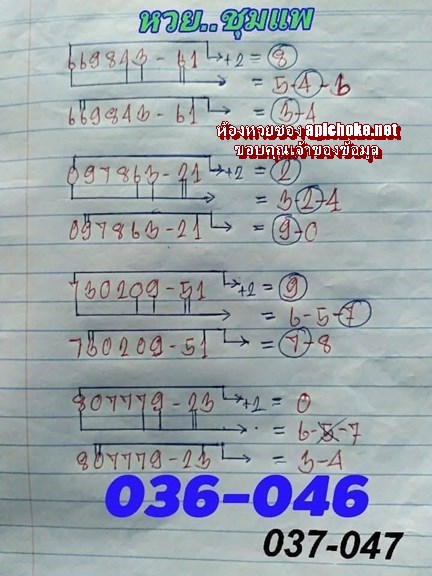 หวย..ชุมแพ
669843-61 +2 = 8
= 5-4-6
669843-61 = 3-4
ห้องหวยซอง apichoke.net
ขอบคุณเจ้าของข้อมูล
097863-21 +2 = 2
= 3-2-4
097863-21 = 9-0
730209-51 +2 = 9
= 6-5-7
730209-51 = 7-8
807779-23 +2 = 0
= 6-5-7
807779-23 = 3-4
036-046
037-047